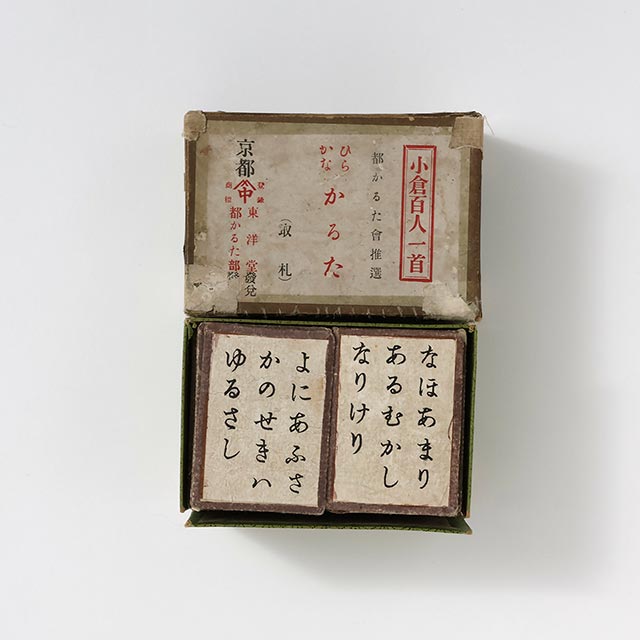 小倉百人一首
都かるた會推選
ひら
かな
かるた
(取札)
京都
登録
商標
東洋堂發兌
都かるた部
なほあまり
あるむかし
なりけり
よにあふさ
かのせきハ
ゆるさし